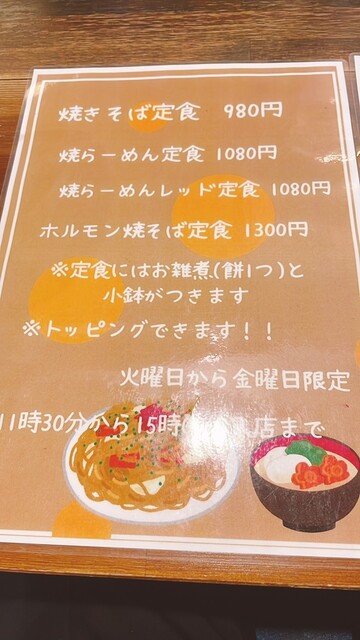 焼きそば定食 980円
焼らーめん定食 1080円
焼らーめんレッド定食 1080円
ホルモン焼そば定食 1300円
※定食にはお雑煮(餅1つ)と
小鉢がつきます
※トッピングできます！！
火曜日から金曜日限定
11時30分から15時 店まで